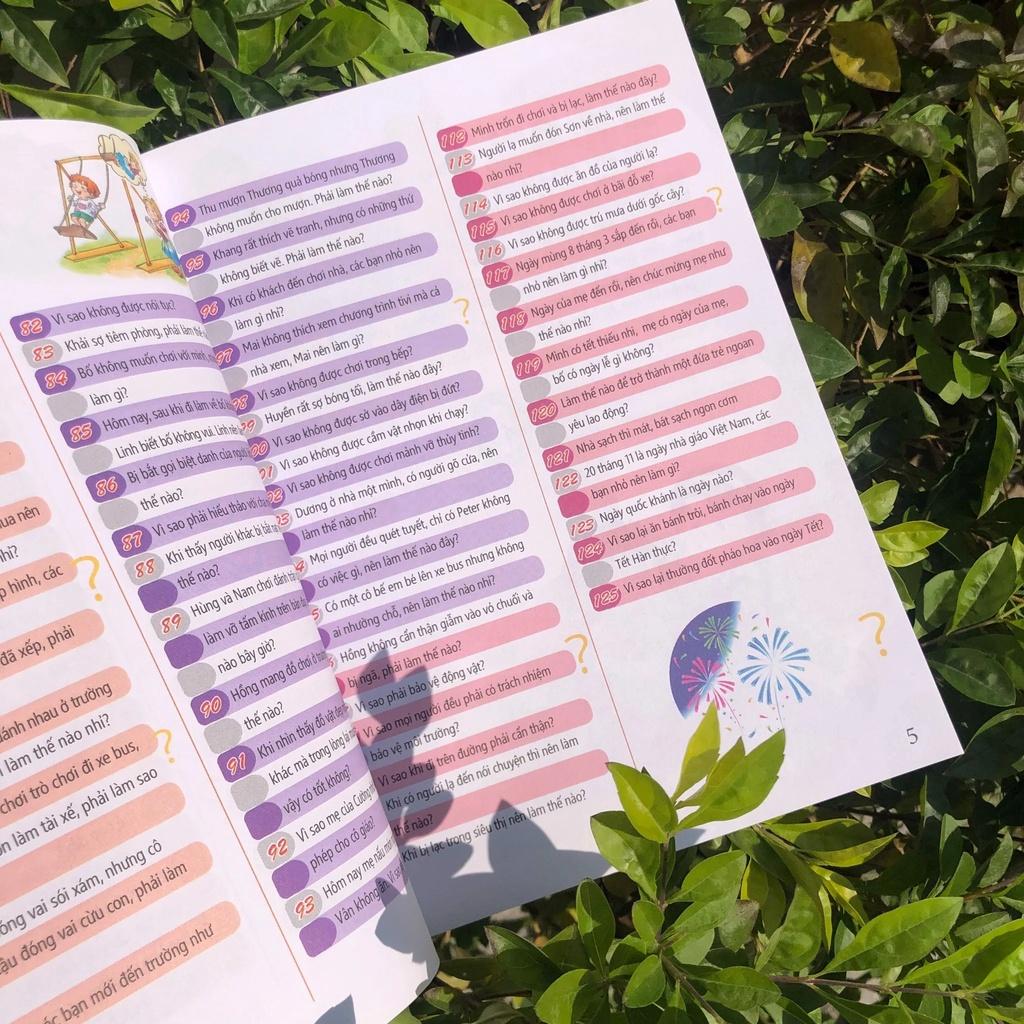 ua nên
hỉ?
p hình, các
đã xếp, phải
ánh nhau ở trường
làm thế nào nhỉ?
chơi trò chơi đi xe bus,
ồn làm tài xế, phải làm sao
óng vai sói xám, nhưng cô
ậu đóng vai cừu con, phải làm
ác bạn mới đến trường như
82 Vì sao không được nói tục?
83 Khải sợ tiêm phòng, phải làm
84 Bố không muốn chơi với mình,
làm gì?
85 Hôm nay, sau khi đi làm về
Linh biết bố không vui. Linh nên
86 Bị bắt gọi biệt danh của người
thế nào?
87 Vì sao phải hiếu thảo với
88 Khi thấy người khác bị bắt
thế nào?
89 Hùng và Nam chơi đánh
làm vỡ tấm kính trên bàn
nào bây giờ?
90 Hồng mang đồ chơi ở
thế nào?
91 Khi nhìn thấy đồ vật
khác mà trong lòng
vậy có tốt không?
92 Vì sao mẹ của Cường
phép cho cô giáo?
93 Hôm nay mẹ nấu
Vân không ăn. Vì
94 Thu mượn Thương quả bóng nhưng Thương
không muốn cho mượn. Phải làm thế nào?
95 Khang rất thích vẽ tranh, nhưng có những thứ
không biết vẽ. Phải làm thế nào?
96 Khi có khách đến chơi nhà, các bạn nhỏ nên
làm gì nhỉ?
97 Mai không thích xem chương trình tivi mà cả
nhà xem, Mai nên làm gì?
98 Vì sao không được chơi trong bếp?
99 Huyền rất sợ bóng tối, làm thế nào đây?
00 Vì sao không được sờ vào dây điện bị đứt?
01 Vì sao không được cầm vật nhọn khi chạy?
02 Vì sao không được chơi mảnh vỡ thủy tinh?
03 Dương ở nhà một mình, có người gõ cửa, nên
làm thế nào nhỉ?
4 Mọi người đều quét tuyết, chỉ có Peter không
có việc gì, nên làm thế nào đây?
5 Có một cô bế em bé lên xe bus nhưng không
ai nhường chỗ, nên làm thế nào nhỉ?
Hồng không cẩn thận giẫm vào vỏ chuối và
bị ngã, phải làm thế nào?
Vì sao phải bảo vệ động vật?
Vì sao mọi người đều phải có trách nhiệm
bảo vệ môi trường?
Vì sao khi đi trên đường phải cẩn thận?
Khi có người lạ đến nói chuyện thì nên làm
thế nào?
Khi bị lạc trong siêu thị nên làm thế nào?
112 Minh trốn đi chơi và bị lạc, làm thế nào đây?
113 Người lạ muốn đón Sơn về nhà, nên làm thế
nào nhỉ?
114 Vì sao không được ăn đồ của người lạ?
115 Vì sao không được chơi ở bãi đỗ xe?
116 Vì sao không được trú mưa dưới gốc cây?
117 Ngày mùng 8 tháng 3 sắp đến rồi, các bạn
nhỏ nên làm gì nhỉ?
118 Ngày của mẹ đến rồi, nên chúc mừng mẹ như
thế nào nhỉ?
119 Mình có tết thiếu nhi, mẹ có ngày của mẹ,
bố có ngày lễ gì không?
120 Làm thế nào để trở thành một đứa trẻ ngoan
yêu lao động?
121 Nhà sạch thì mát, bát sạch ngon cơm
122 20 tháng 11 là ngày nhà giáo Việt Nam, các
bạn nhỏ nên làm gì?
123 Ngày quốc khánh là ngày nào?
124 Vì sao lại ăn bánh trôi, bánh chay vào ngày
Tết Hàn thực?
125 Vì sao lại thường đốt pháo hoa vào ngày Tết?
5